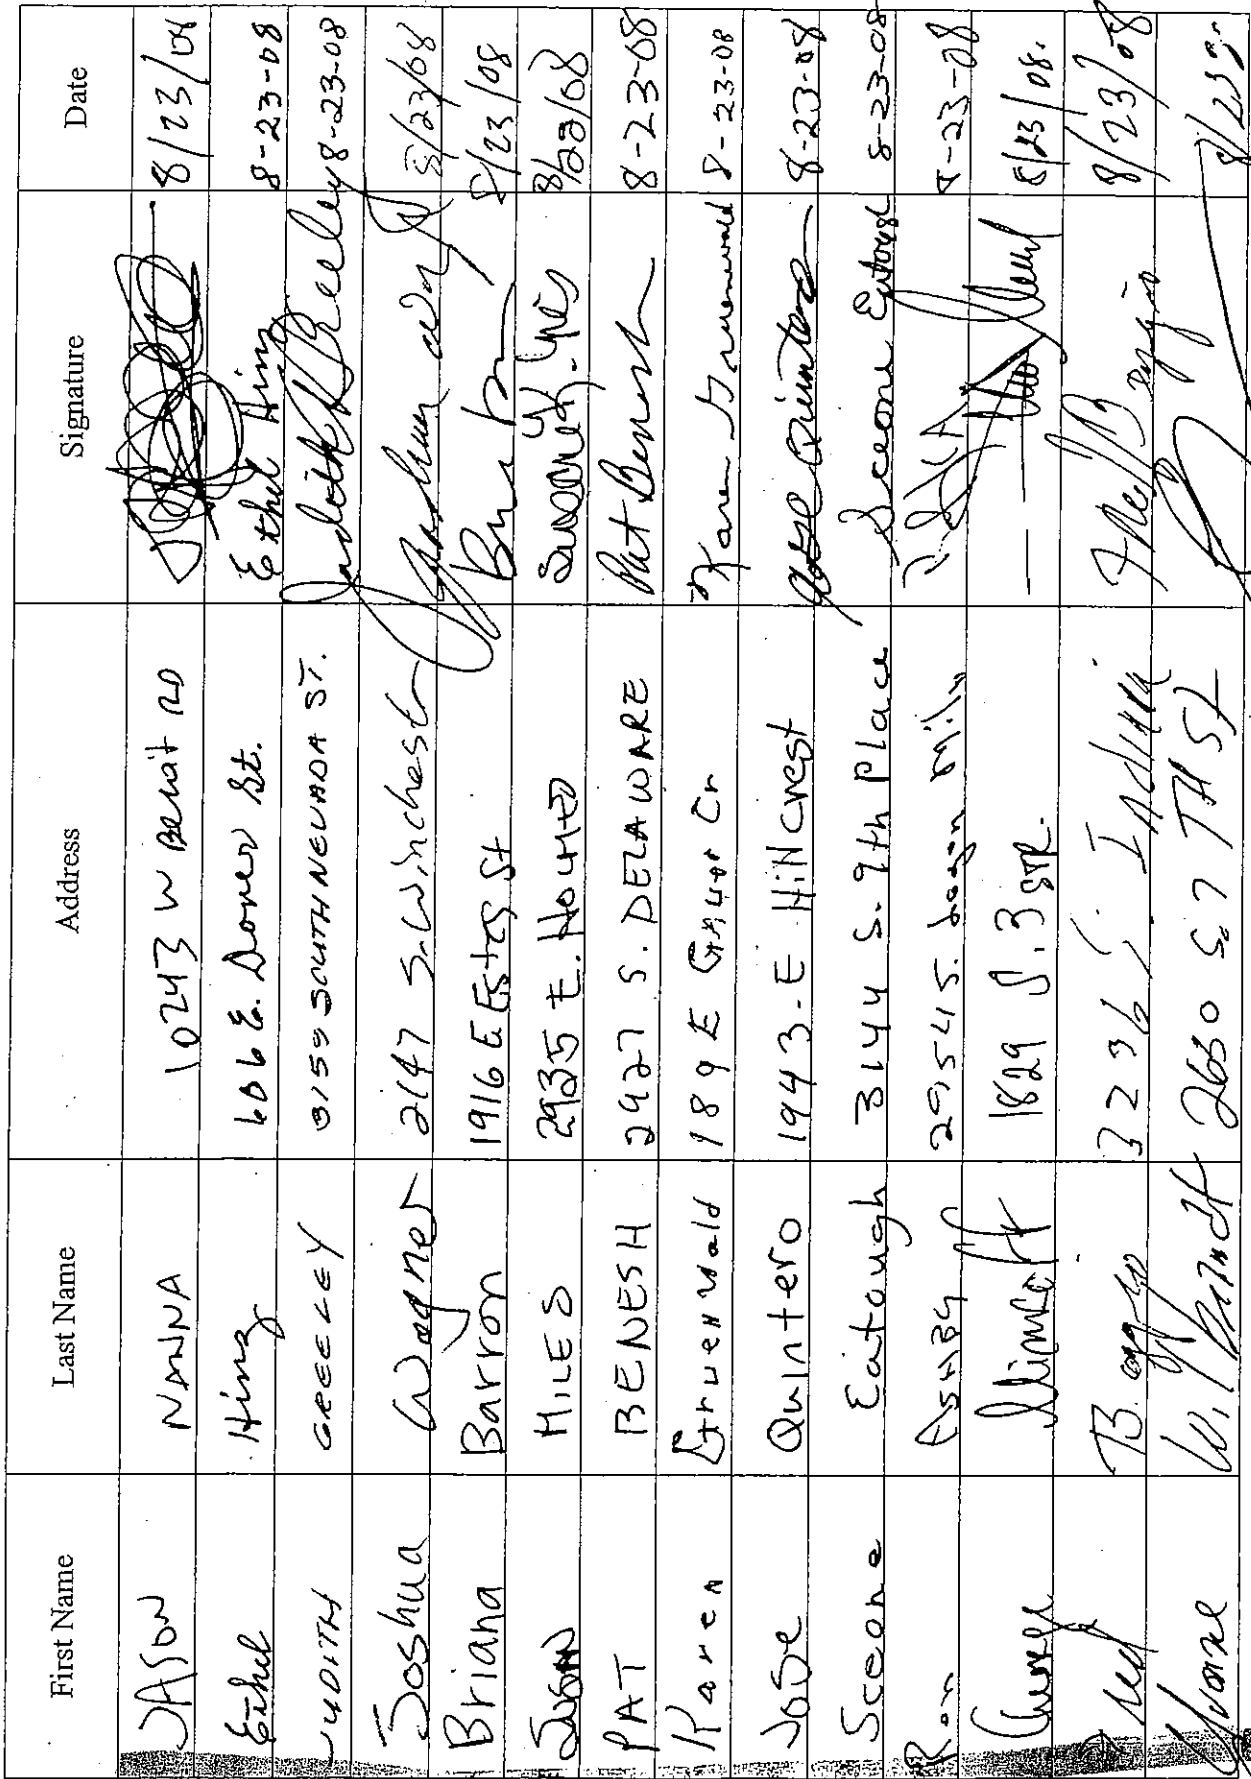 First Name Last Name Address Signature Date
JASON NANNA 10243 W Beloit RD 8/23/08
Ethel Hinz 606 E. Dover St. Ethel Hinz 8-23-08
JUDITH GREELEY 3159 SOUTH NEVADA ST. Judith Greeley 8-23-08
Joshua Wagner 2147 S. Winchester 8/23/08
Briana Barron 1916 E Estes St 8/23/08
MILES 2935 E. 8/23/08
PAT BENESH 2927 S. DELAWARE Pat Benesh 8-23-08
Karen Gruenwald 189 E Cr Karen Gruenwald 8-23-08
Jose Quintero 1943-E. Hillcrest Jose Quintero 8-23-08
Sceone Eatough 3144 S. 9th Place Sceone Eatough 8-23-08
Ron ASHBY 2954 S. 8-23-08
1829 S. 3 8/23/08.
3236 S. 8/23/08
2680 S. 7 TH St